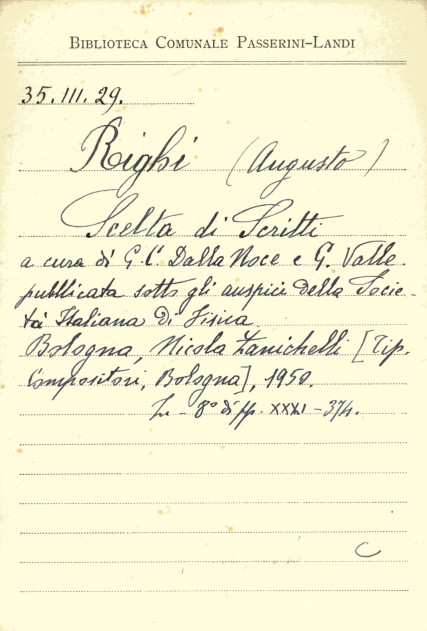 BIBLIOTECA COMUNALE PASSERINI-LANDI
35.III.29.
Righi (Augusto)
Scelta di Scritti
a cura di G. C. Dalla Noce e G. Valle.
pubblicata sotto gli auspici della Socie-
tà Italiana di Fisica
Bologna, Nicola Zanichelli [Tip.
Compositori, Bologna], 1950.
8° di pp. XXXI - 374.
C